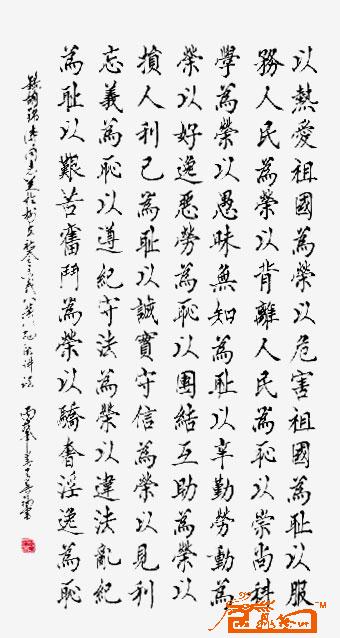 以熱愛祖國為榮以危害祖國為耻以服
務人民為榮以背離人民為恥以崇尚科
學為榮以愚昧無知為耻以辛勤勞動為
榮以好逸惡勞為恥以團結互助為榮以
損人利己為耻以誠實守信為榮以見利
忘義為恥以遵紀守法為榮以違法亂紀
為耻以艱苦奮鬥為榮以驕奢淫逸為恥
錄胡錦濤同志